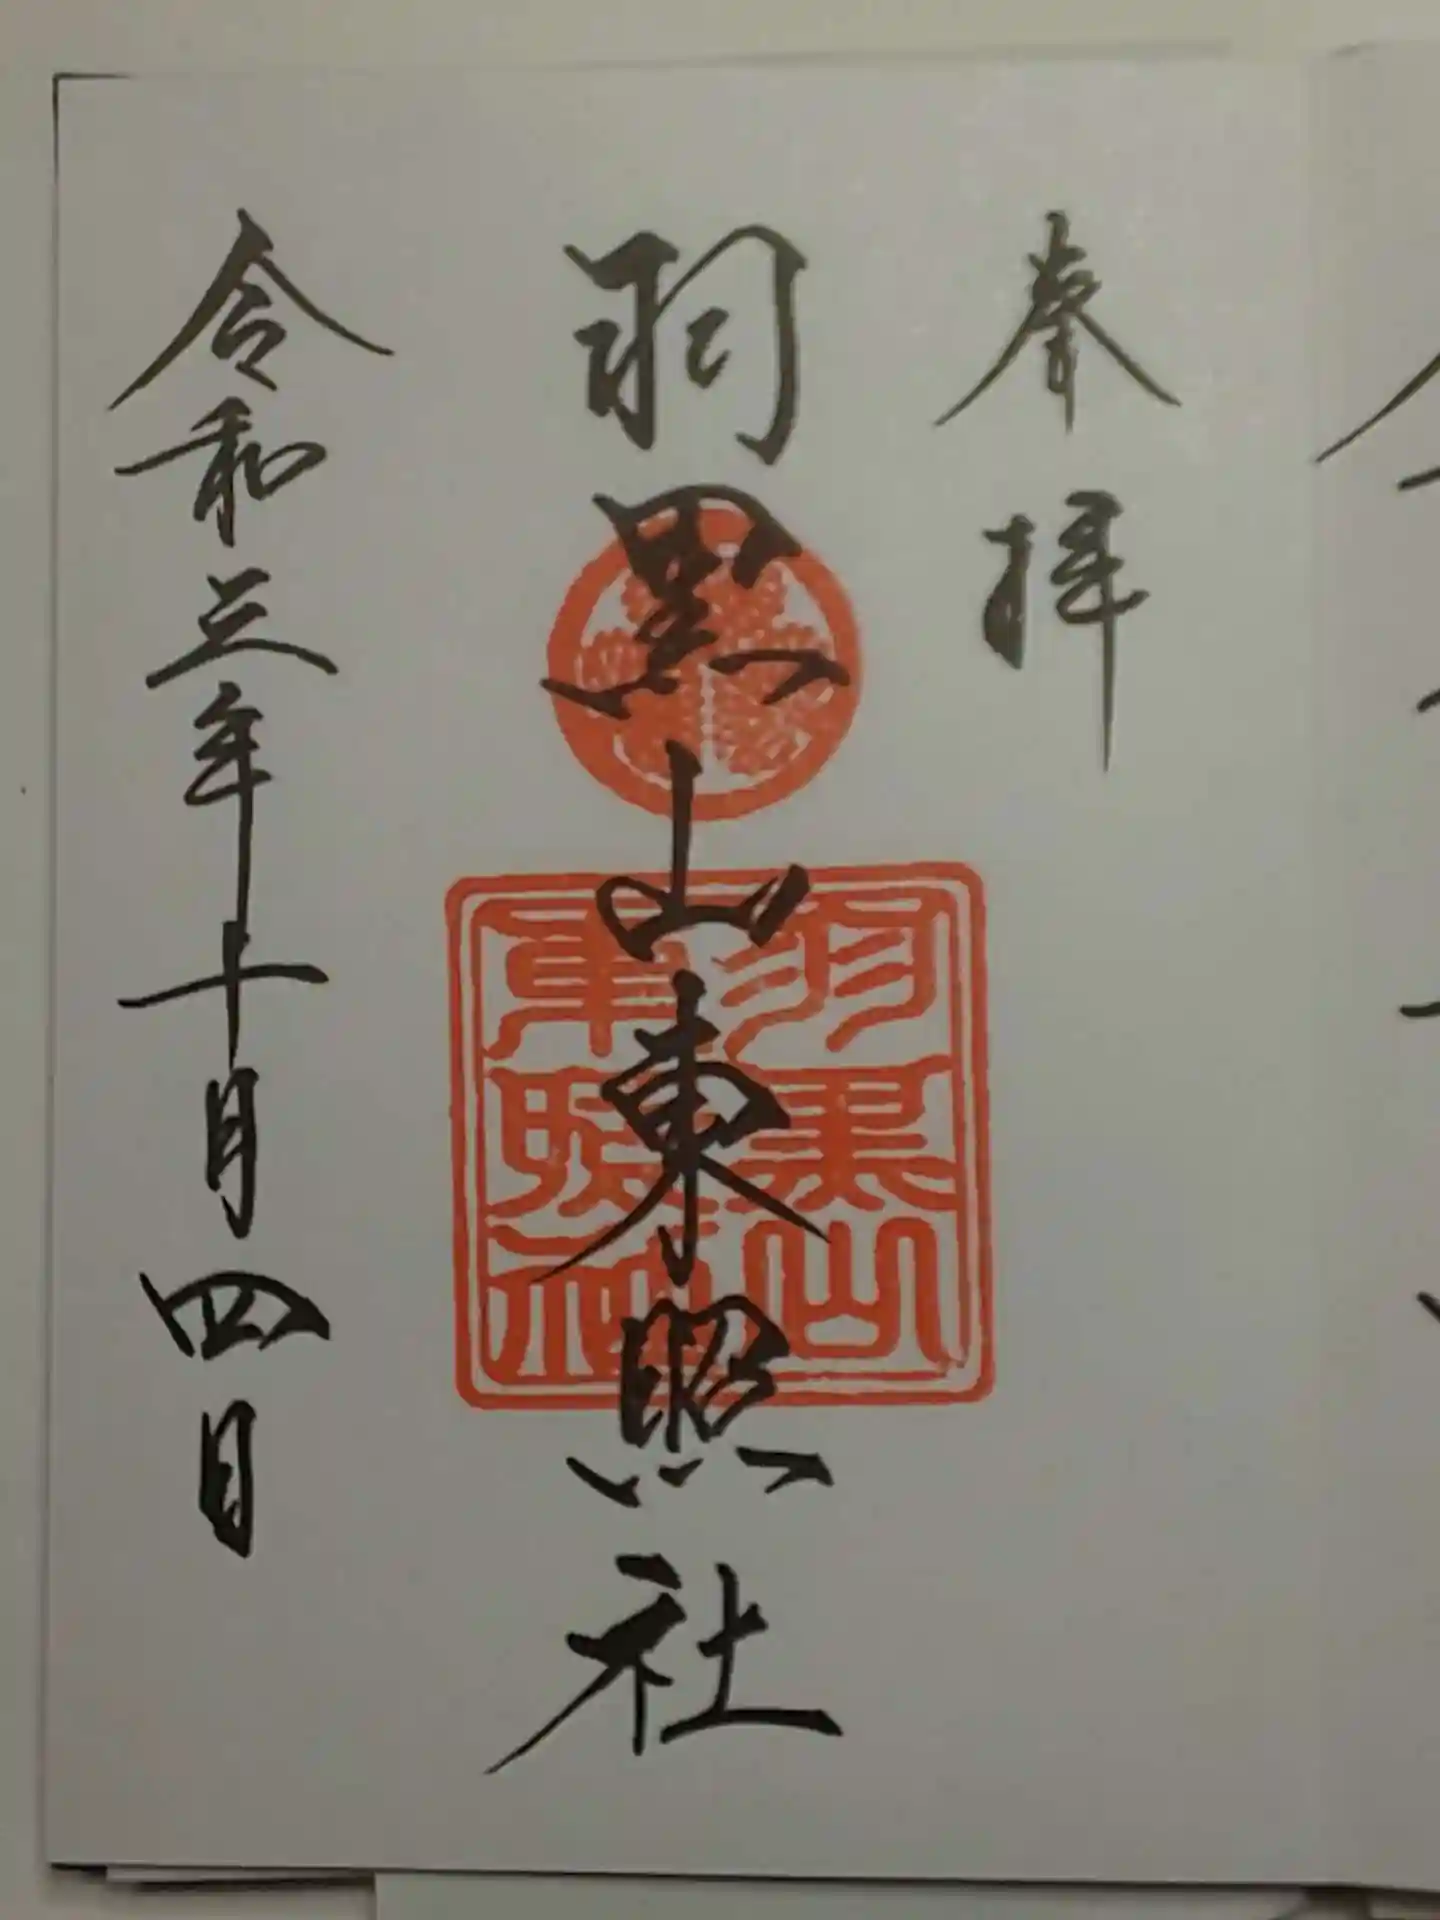 奉拝
羽黒山東照社
羽黒山
東照社
令和三年十月四日